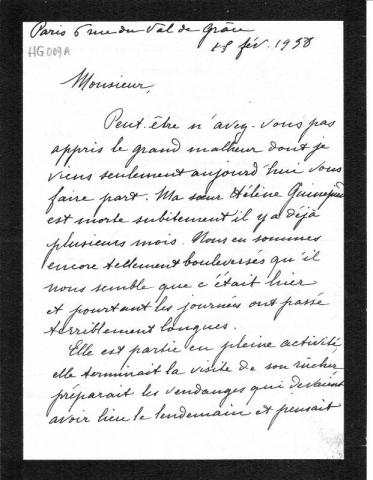 Paris 6 rue du Val de Grâce
18 fév. 1958
HG 009A
Monsieur,
Peut-être n'avez-vous pas
appris le grand malheur dont je
viens seulement aujourd'hui vous
faire part. Ma sœur Hélène
est morte subitement il y a déjà
plusieurs mois. Nous en sommes
encore tellement bouleversés qu'il
nous semble que c'était hier
et pourtant les journées ont passé
terriblement longues.
Elle est partie en pleine activité
elle terminait la visite de son rucher
préparait les vendanges qui devaient
avoir lieu le lendemain et pensait